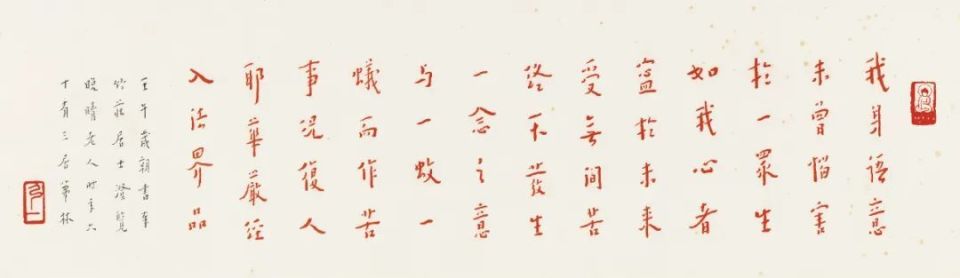 我身語意
未曾惱害
於一眾生
如我心者
寧於未來
受無間苦
終不發生
一念之意
与一蚊一
蟻而作苦
事況復人
耶華嚴經
入法界品
壬午歲朝書奉
竹莊居士澄覽
晚晴老人時年六
十有三居林
弘一